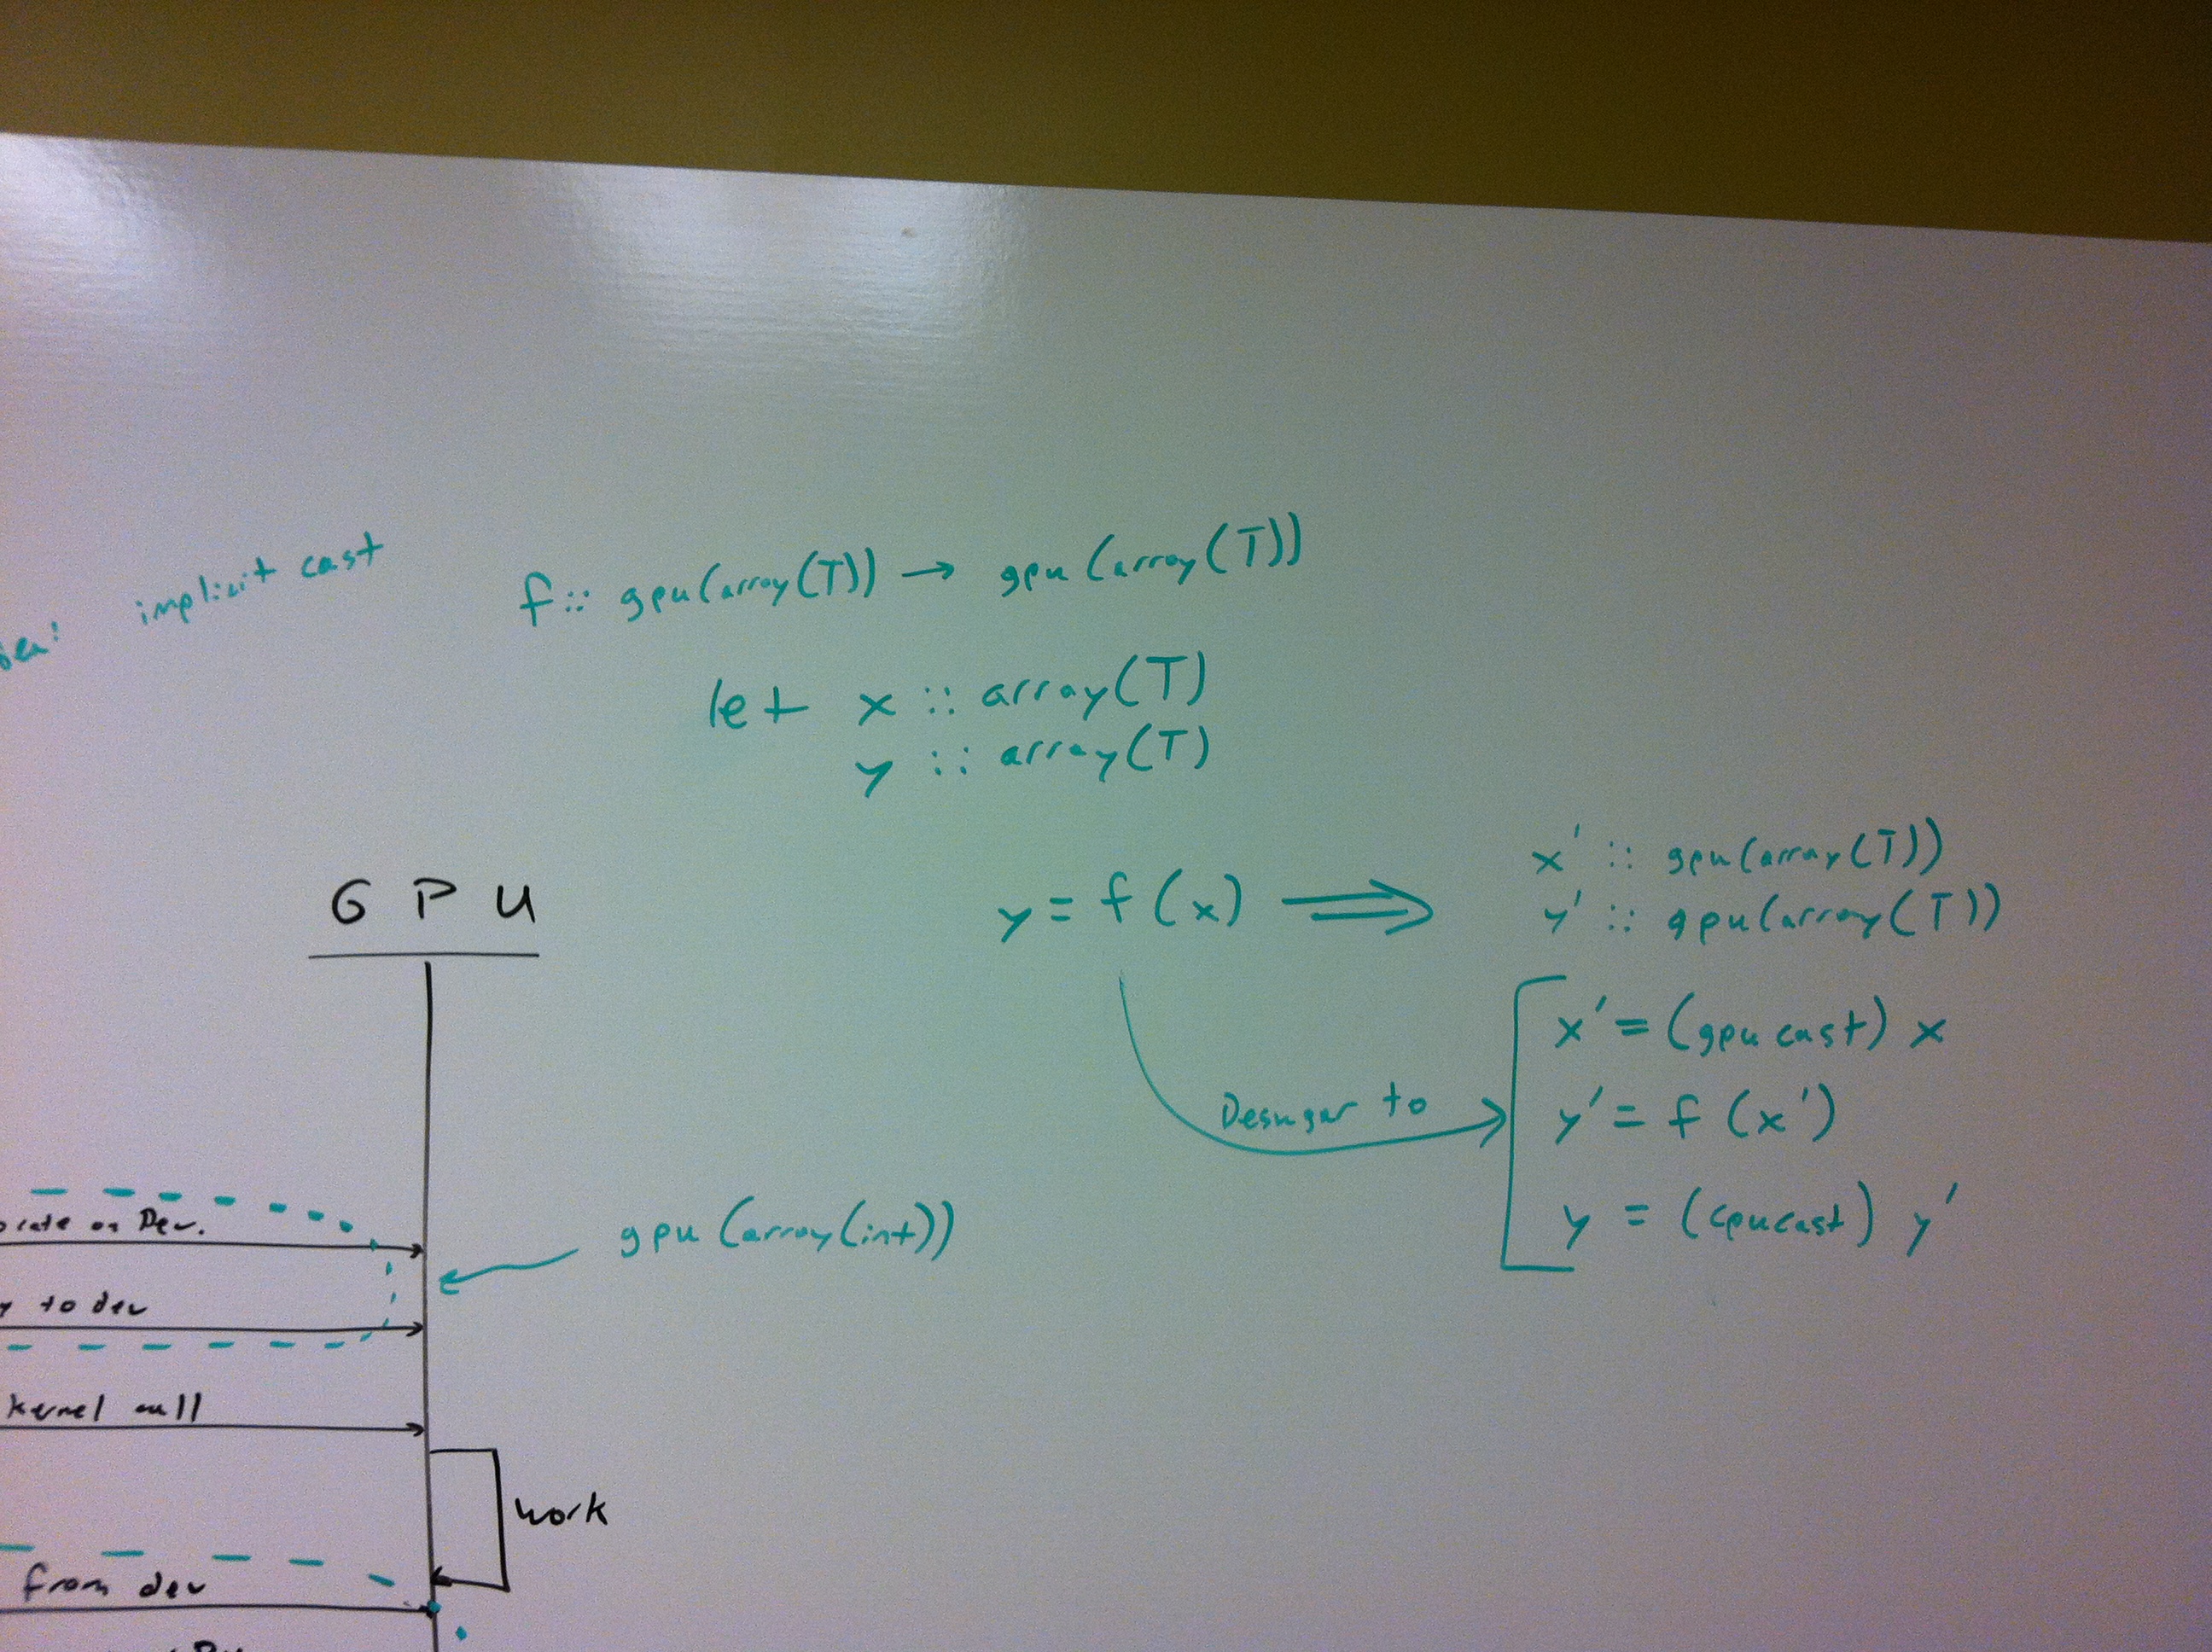 implicit cast
f :: gpu(array(T)) → gpu(array(T))
let x :: array(T)
y :: array(T)
y = f(x) ⟹
x' :: gpu(array(T))
y' :: gpu(array(T))
Desugar to
x' = (gpucast) x
y' = f(x')
y = (cpucast) y'
GPU
on Dev.
gpu(array(int))
to dev
kernel call
work
from dev